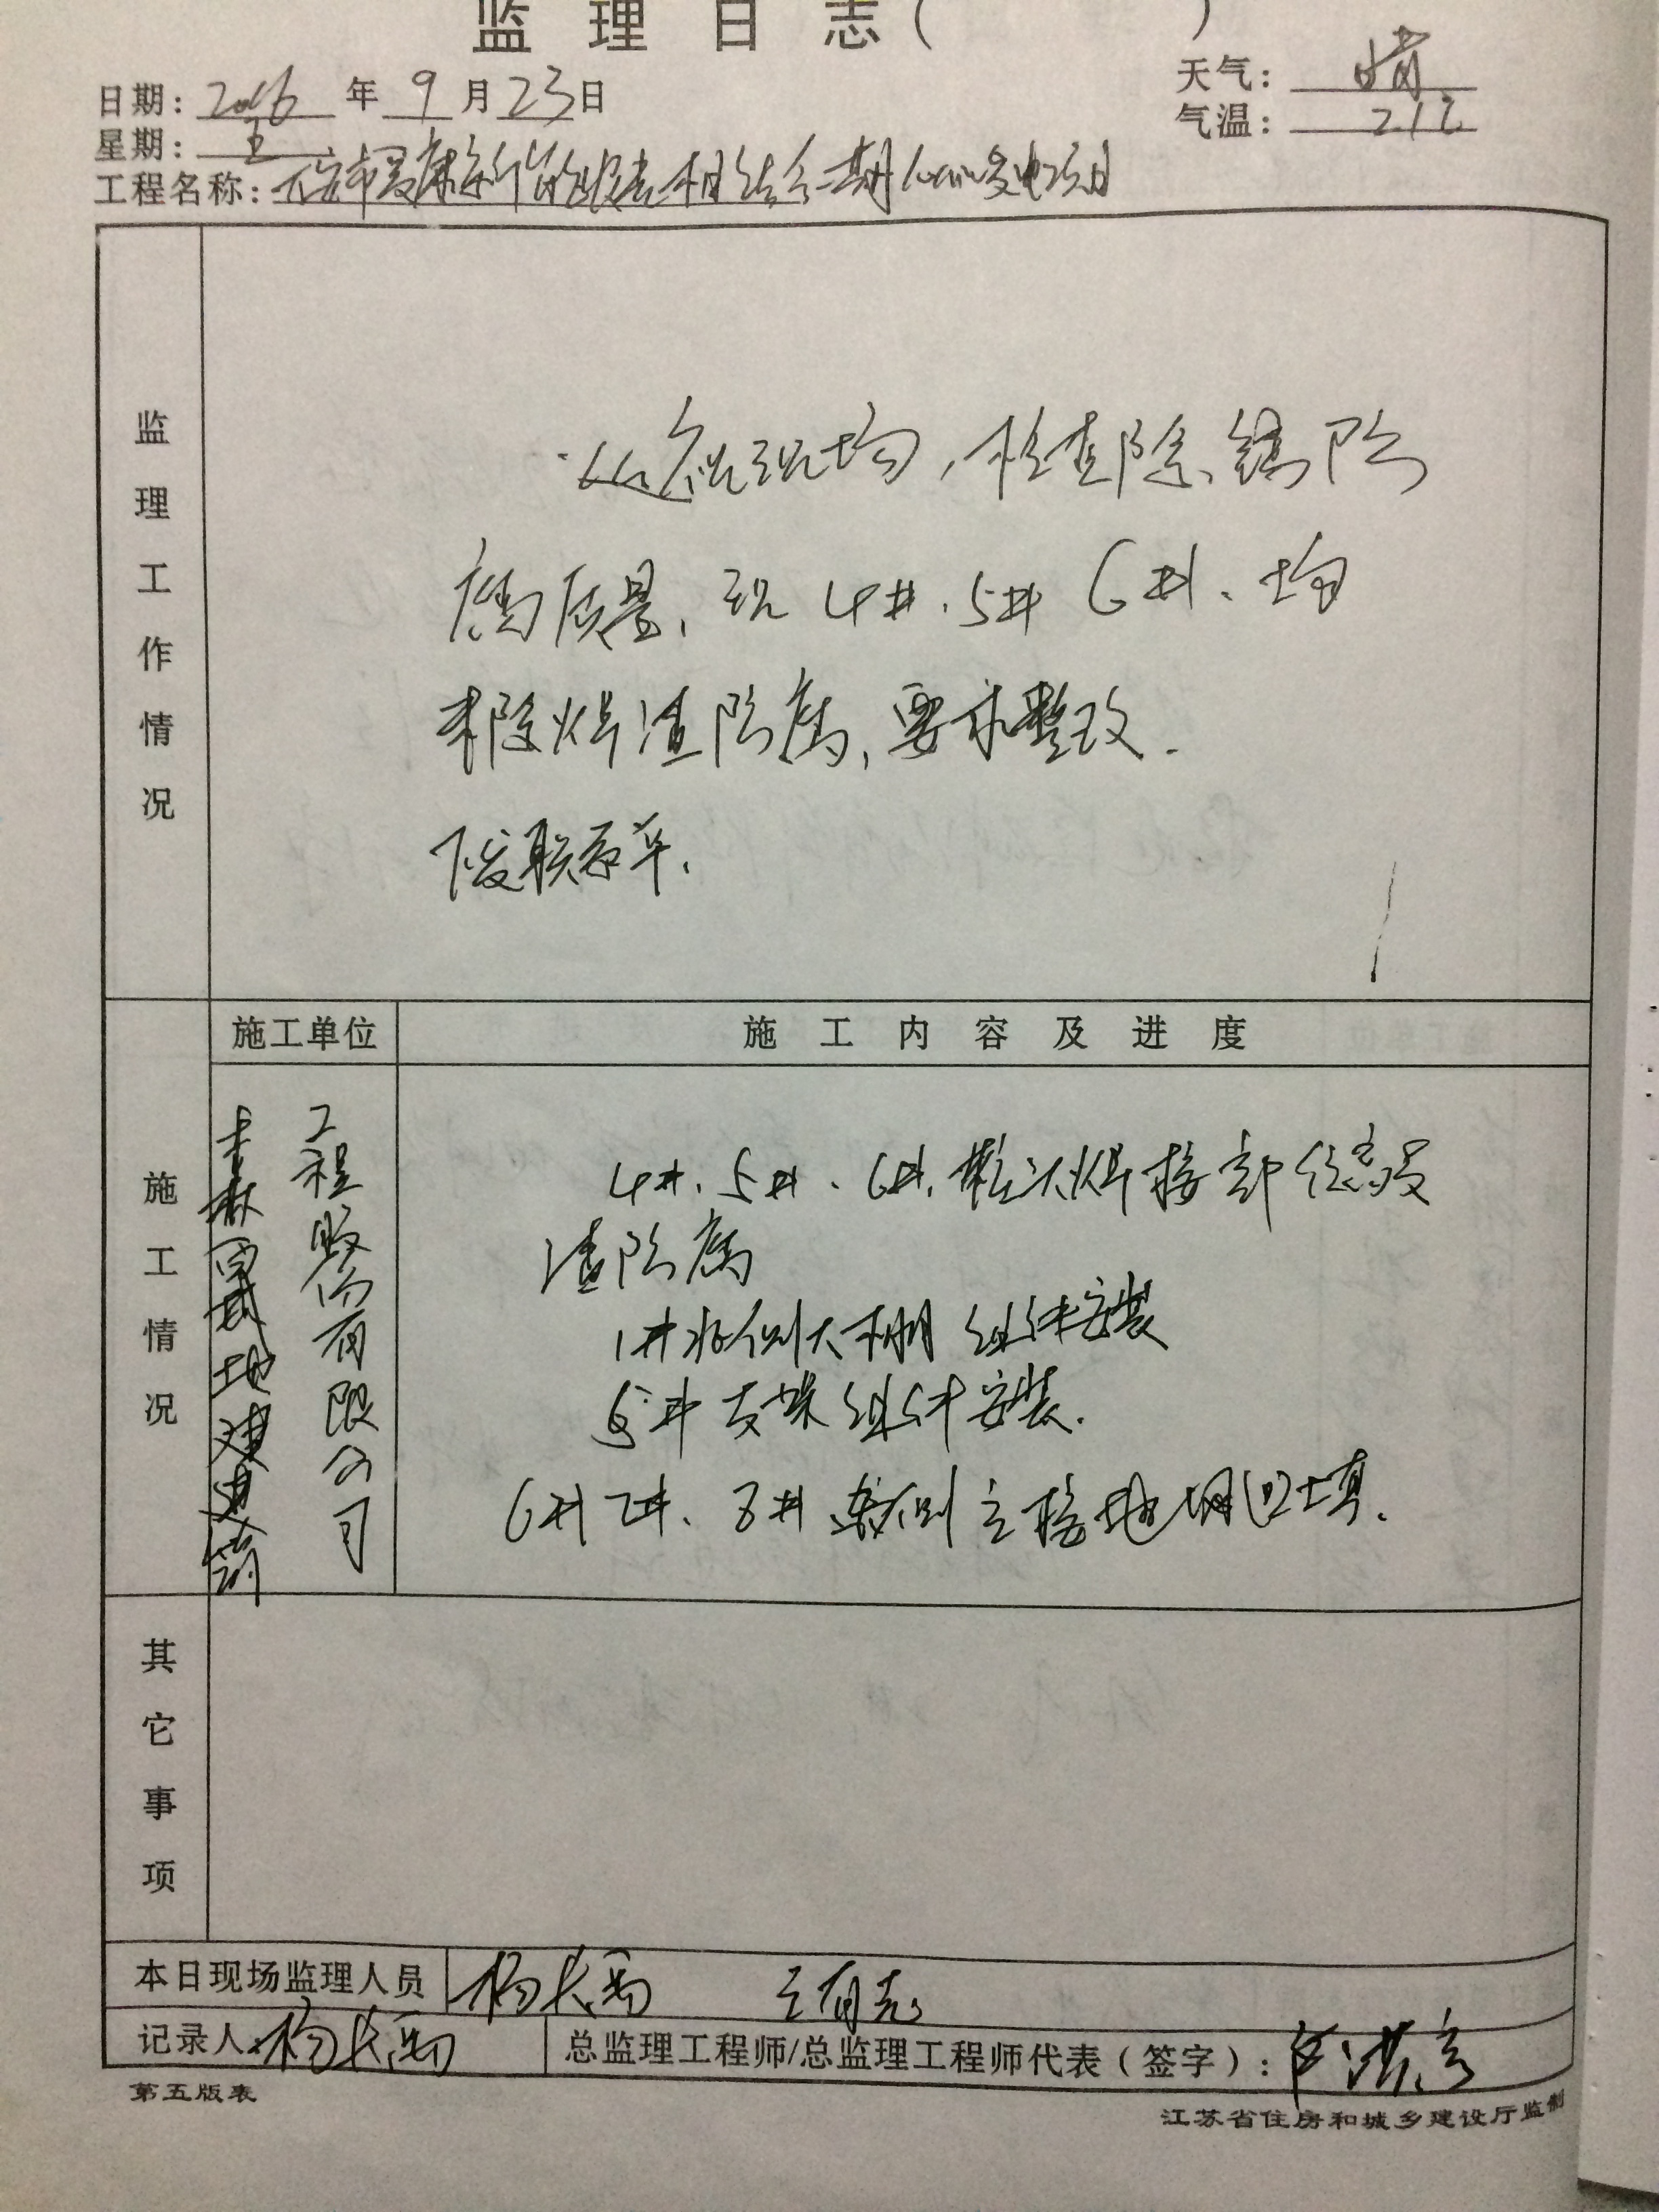 监理日志（ ）
日期：2016年9月23日
天气：晴
星期：五
气温：21℃
工程名称：相结合二期发电项目
监理工作情况
巡视现场，检查除锈防
腐质量，现4#、5#6#、均
未除焊渣防腐，要求整改.
施工情况
施工单位
施工内容及进度
工程股份有限公司
地建建筑
4#、5#、6#、桩头焊接部位
渣防腐
1#北侧大棚组件安装
5#支架组件安装.
6#7#、8#东侧主接地网回填.
其它事项
本日现场监理人员
杨长
王有志
记录人：杨长
总监理工程师/总监理工程师代表（签字）：
第五版表
江苏省住房和城乡建设厅监制